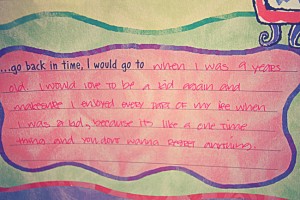 ...go back in time, I would go to when I was 9 years
old. I would love to be a kid again and
makesure I enjoyed every part of my life when
I was a kid, because its like a one time
thing and you dont wanna regret anything.